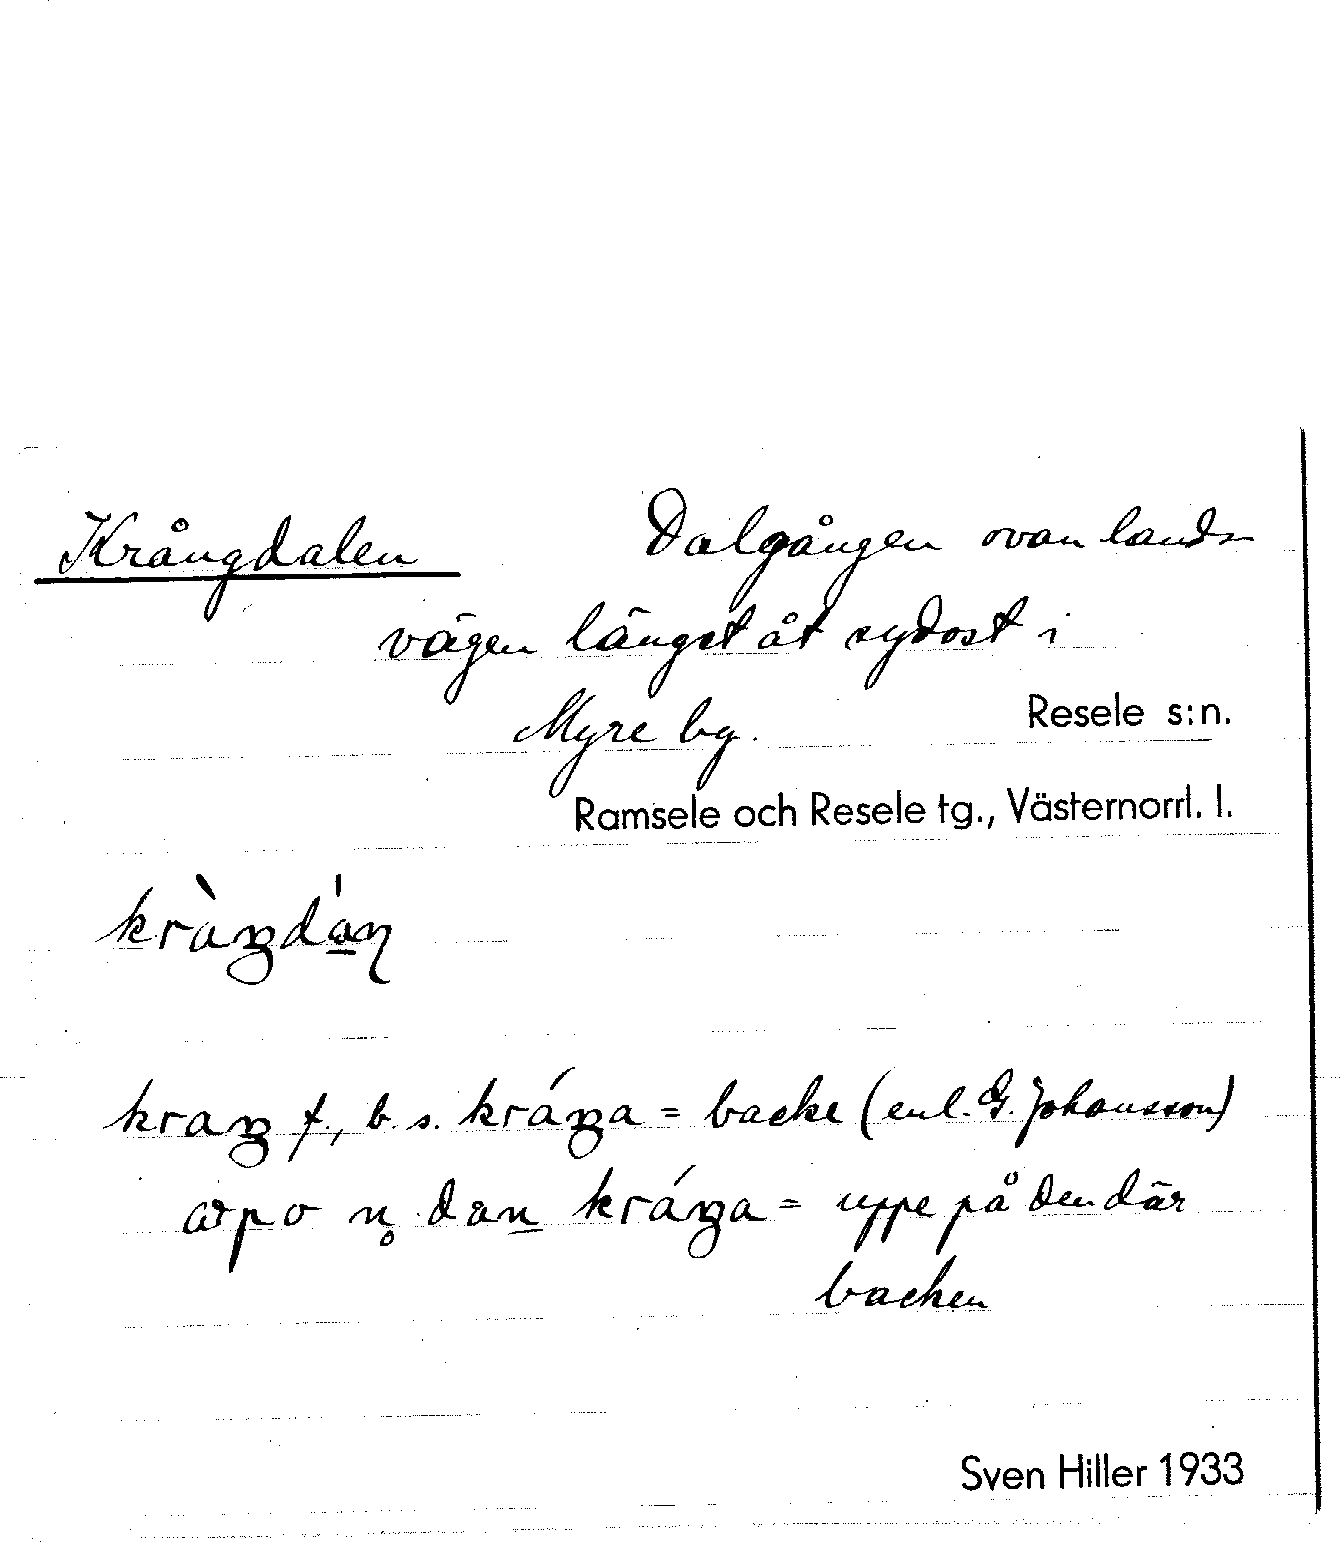 Krångdalen Dalgången ovan lands-
vägen längst åt sydost i
Myre bg. Resele s:n.
Ramsele och Resele tg., Västernorrl. l.
kràŋdán
kraŋ f., b. s. kráŋa = backe (enl. G. Johansson)
n̥ dan kráŋa = uppe på den där
backen
Sven Hiller 1933